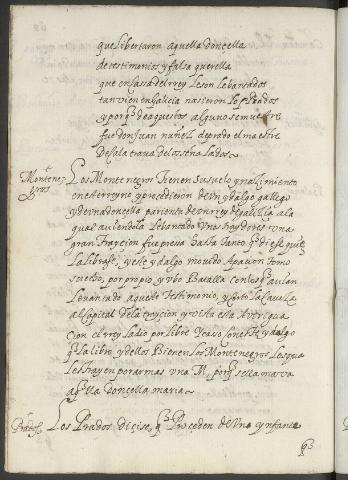 que libertaron aquella donçella
de testimonios y falsa querella
que en cassa del rrey le son lebantados
tan vien en galicia nasieron los prados
y porq̃ de aquestos alguno se muestre
fue don juan nuñez de prado el maestre
De calatrava de los señalados
Montene
gros
Los Montenegros tienen su suelo y naçimiento
en este rreyno y precedieron de Un ydalgo gallego
y de vna donçella parienta de Un rrey de galiçia a la
qual aviendole lebantado Unos traydores una
gran trayçion fue presa hasta tanto q̃ diese quien
la librase, y este ydalgo movido a pasion tomo
su echo, por propio y Ubo Batalla con los q̃ avian
levantado aqueste testimonio, y corto la cavesa
al capital de la trayçion y vista esta
con el rrey la dio por libre y caso con este ydalgo
q̃ la libro, y dellos Bienen los Montenegros los qua
les trayen por armas una M. porq̃ se llamava
aq̃lla donçella maria
Prados
Los Prados diçise, q̃ Proçeden de Una ynfanta